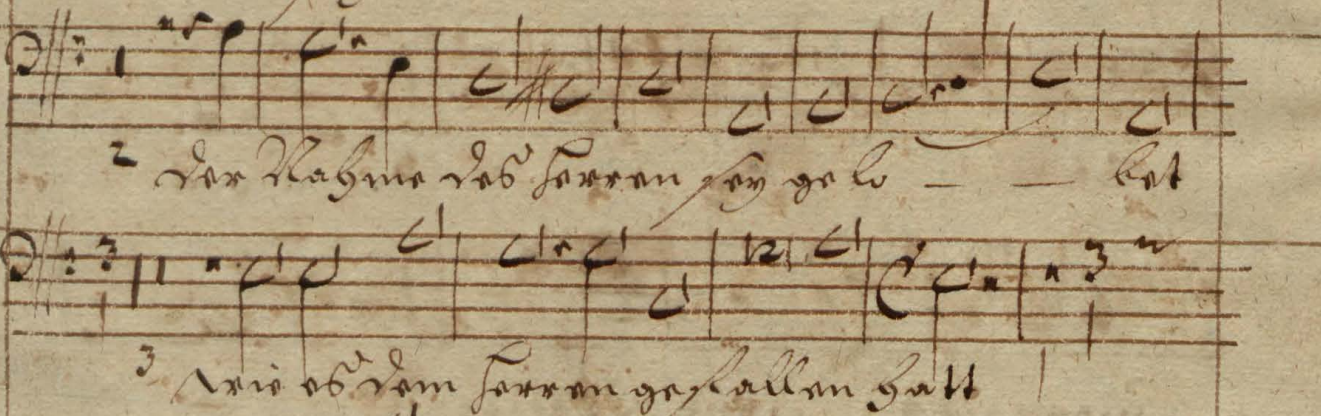 2 der Nahme des Herren sey gelo – – bet
3 wie es dem Herren gefallen hatt